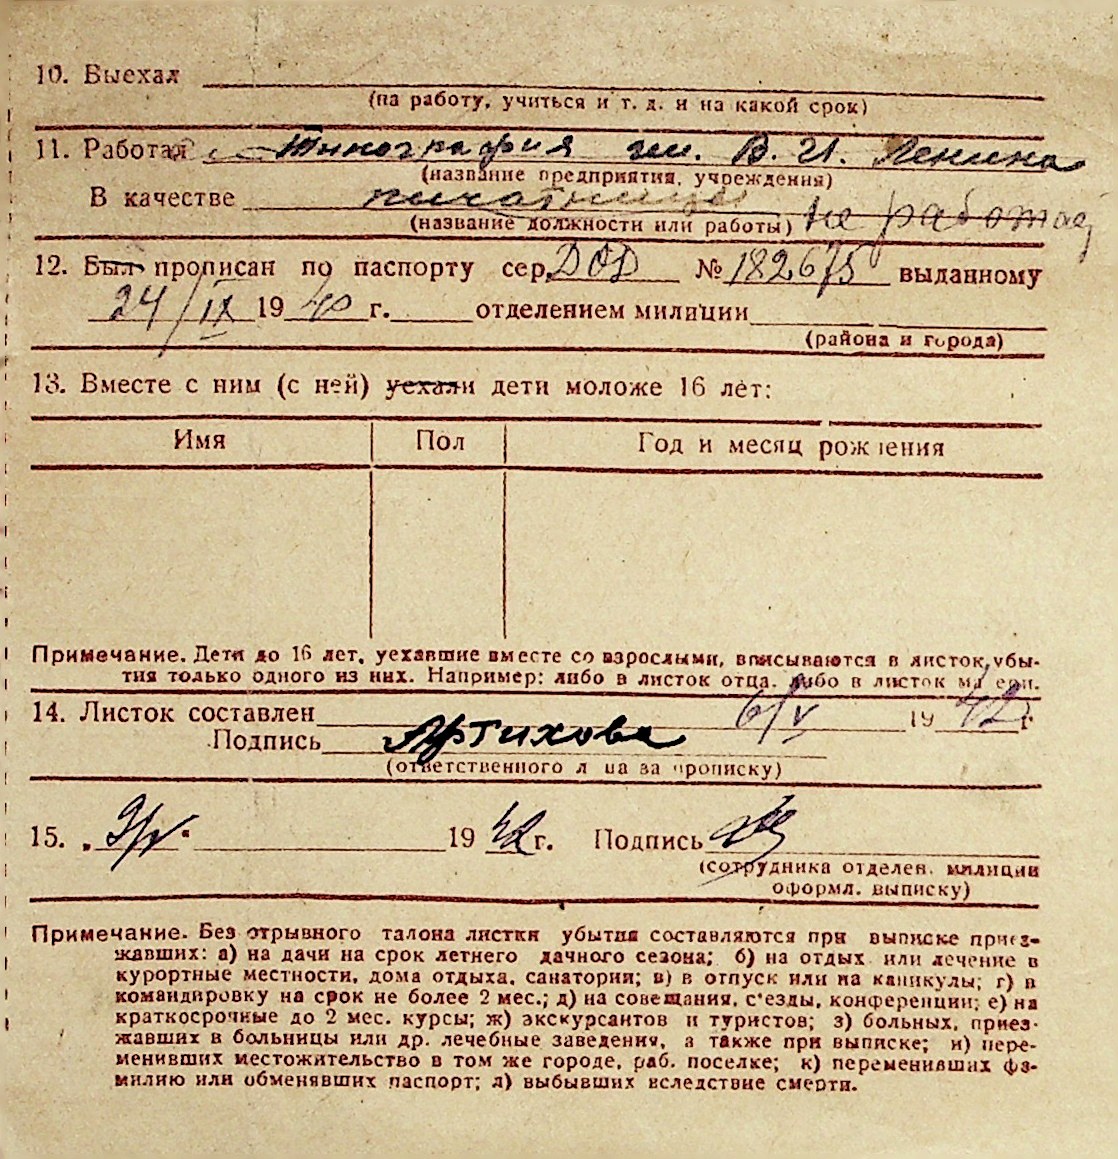 10. Выехал
(на работу, учиться и т. д. и на какой срок)
11. Работал Типография им. В. И. Ленина
(название предприятия, учреждения)
В качестве печатницы
(название должности или работы) не работал
12. Был прописан по паспорту сер. ДОД № 182675 выданному
24/IX 19 40 г. отделением милиции
(района и города)
13. Вместе с ним (с ней) уехали дети моложе 16 лет:
Имя Пол Год и месяц рождения
Примечание. Дети до 16 лет, уехавшие вместе со взрослыми, вписываются в листок убы-
тия только одного из них. Например: либо в листок отца, либо в листок матери.
14. Листок составлен 6/V 19 42 г.
Подпись Артихова
(ответственного лица за прописку)
15. „ 9/V “ 19 42 г. Подпись
(сотрудника отделен. милиции
оформл. выписку)
Примечание. Без отрывного талона листки убытия составляются при выписке приез-
жавших: а) на дачи на срок летнего дачного сезона; б) на отдых или лечение в
курортные местности, дома отдыха, санатории; в) в отпуск или на каникулы; г) в
командировку на срок не более 2 мес.; д) на совещания, с'езды, конференции; е) на
краткосрочные до 2 мес. курсы; ж) экскурсантов и туристов; з) больных, приез-
жавших в больницы или др. лечебные заведения, а также при выписке; и) пере-
менивших местожительство в том же городе, раб. поселке; к) переменивших фа-
милию или обменявших паспорт; л) выбывших вследствие смерти.